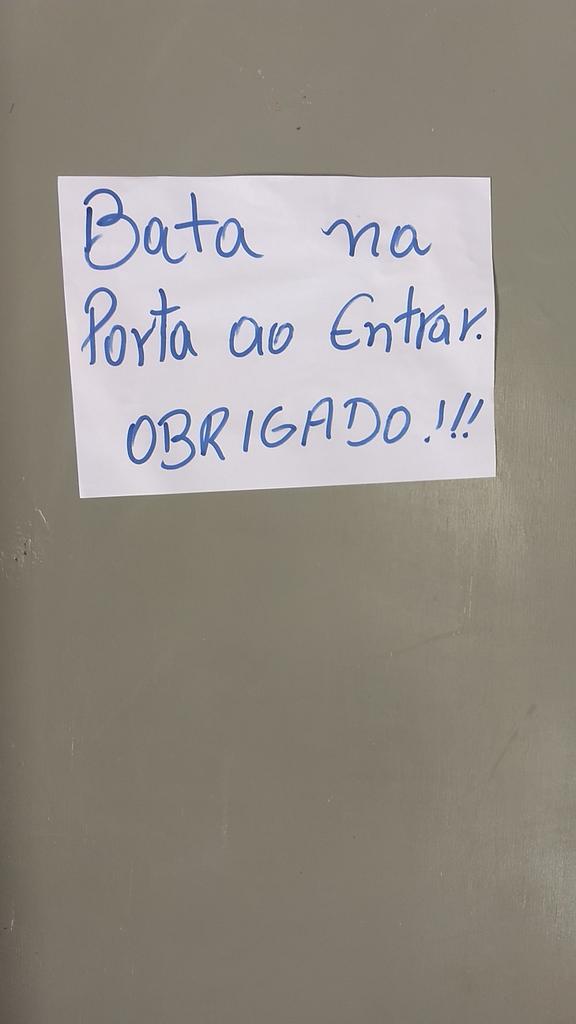 Bata na
Porta ao Entrar.
OBRIGADO.!!!